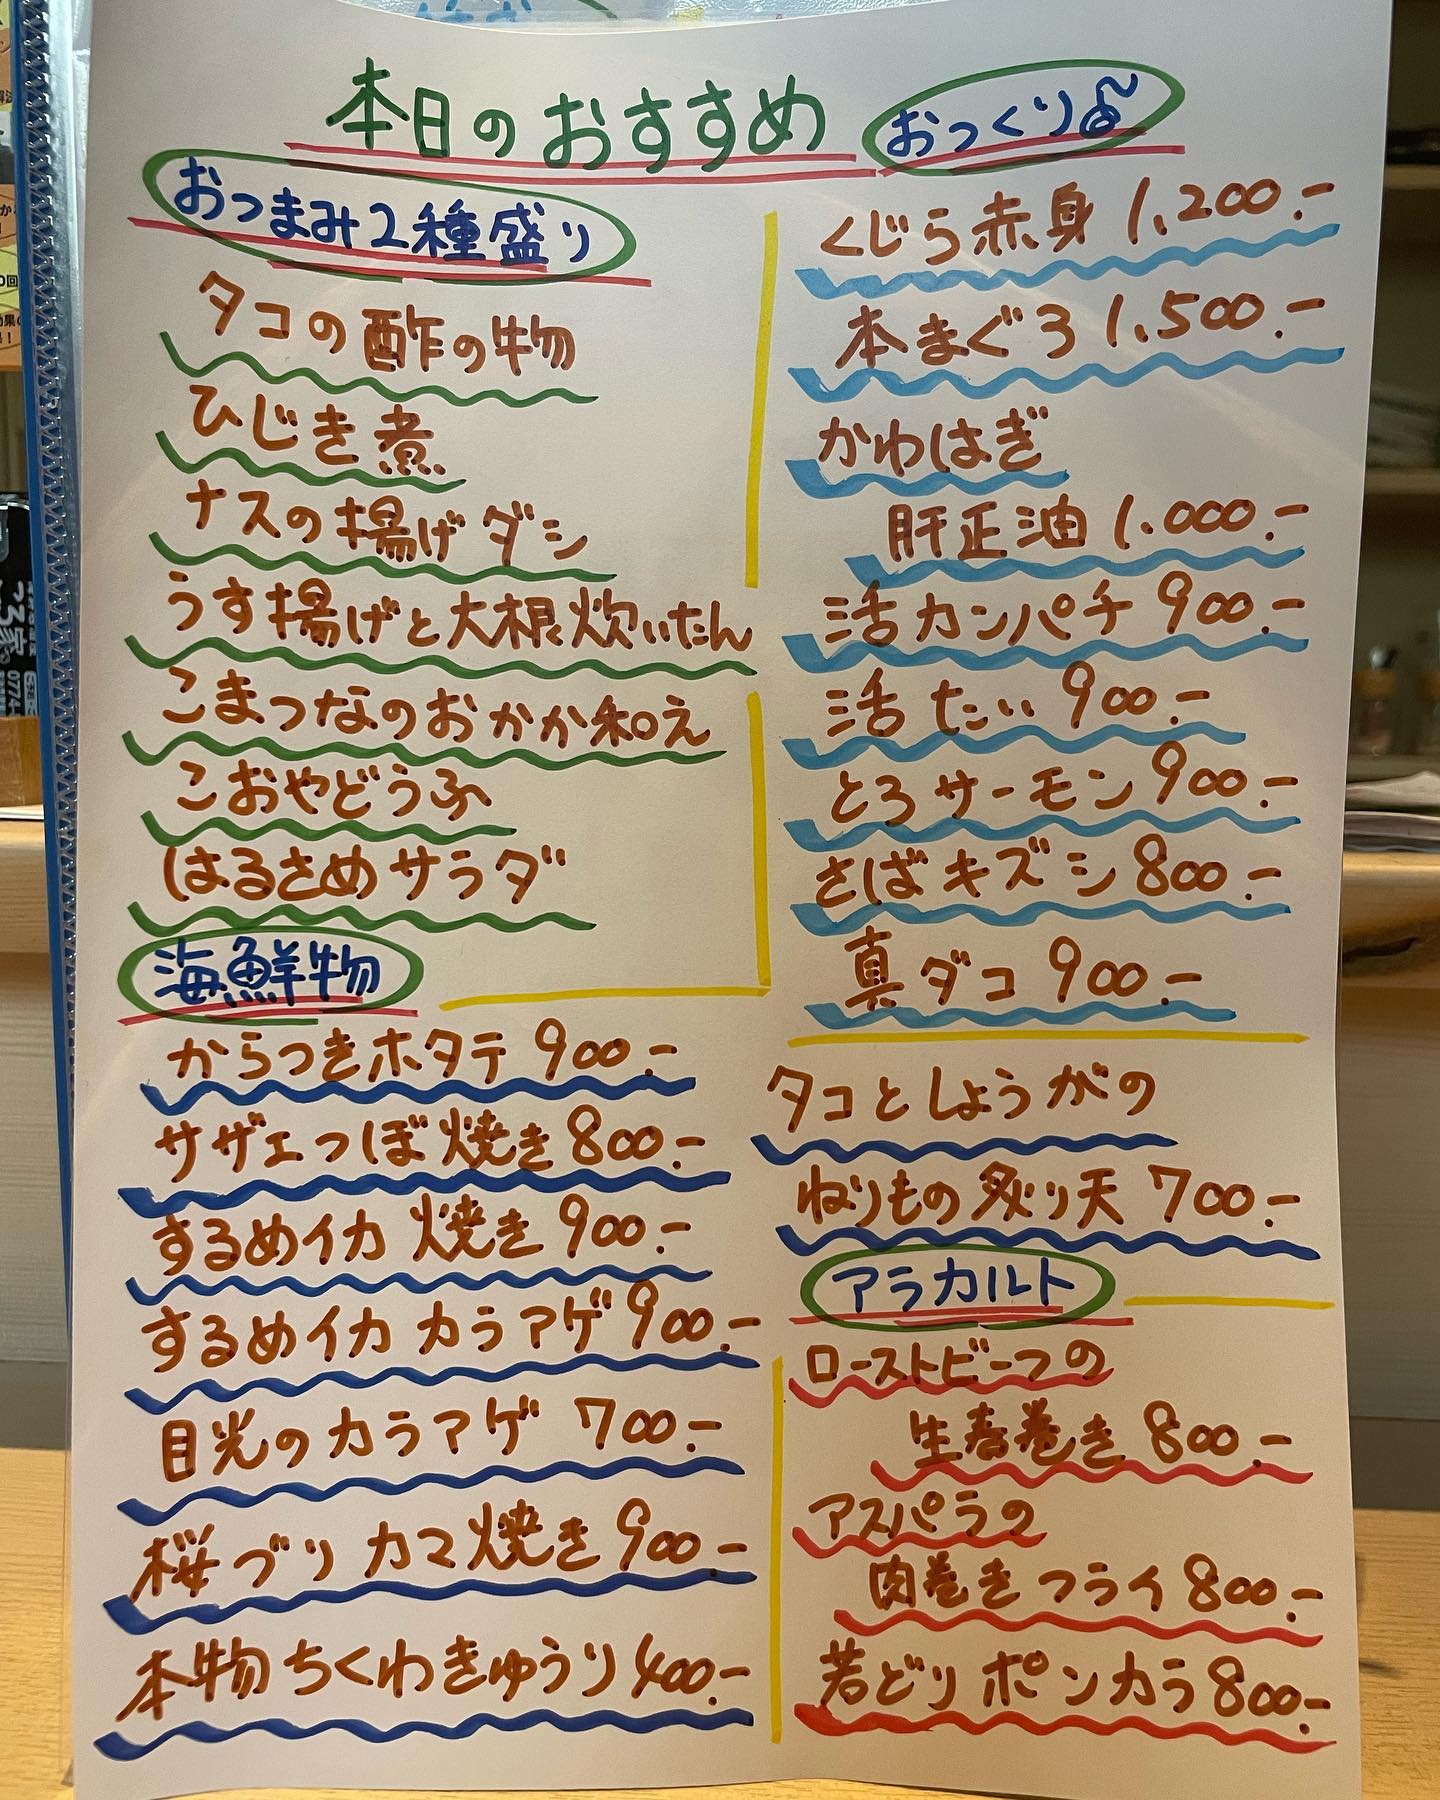 本日のおすすめ
おつまみ2種盛り
タコの酢の物
ひじき煮
ナスの揚げダシ
うす揚げと大根炊いたん
こまつなのおかか和え
こおやどうふ
はるさめサラダ
海鮮物
からつきホタテ 900.-
サザエつぼ焼き 800.-
するめイカ焼き 900.-
するめイカカラアゲ 900.-
目光のカラアゲ 700.-
桜ブリカマ焼き 900.-
本物ちくわきゅうり 400.-
おつくり
くじら赤身 1,200.-
本まぐろ 1,500.-
かわはぎ
肝正油 1.000.-
活カンパチ 900.-
活たい 900.-
とろサーモン 900.-
さばキズシ 800.-
真ダコ 900.-
タコとしょうがの
ねりもの炙り天 700.-
アラカルト
ローストビーフの
生春巻き 800.-
アスパラの
肉巻きフライ 800.-
若どりポンカラ 800.-